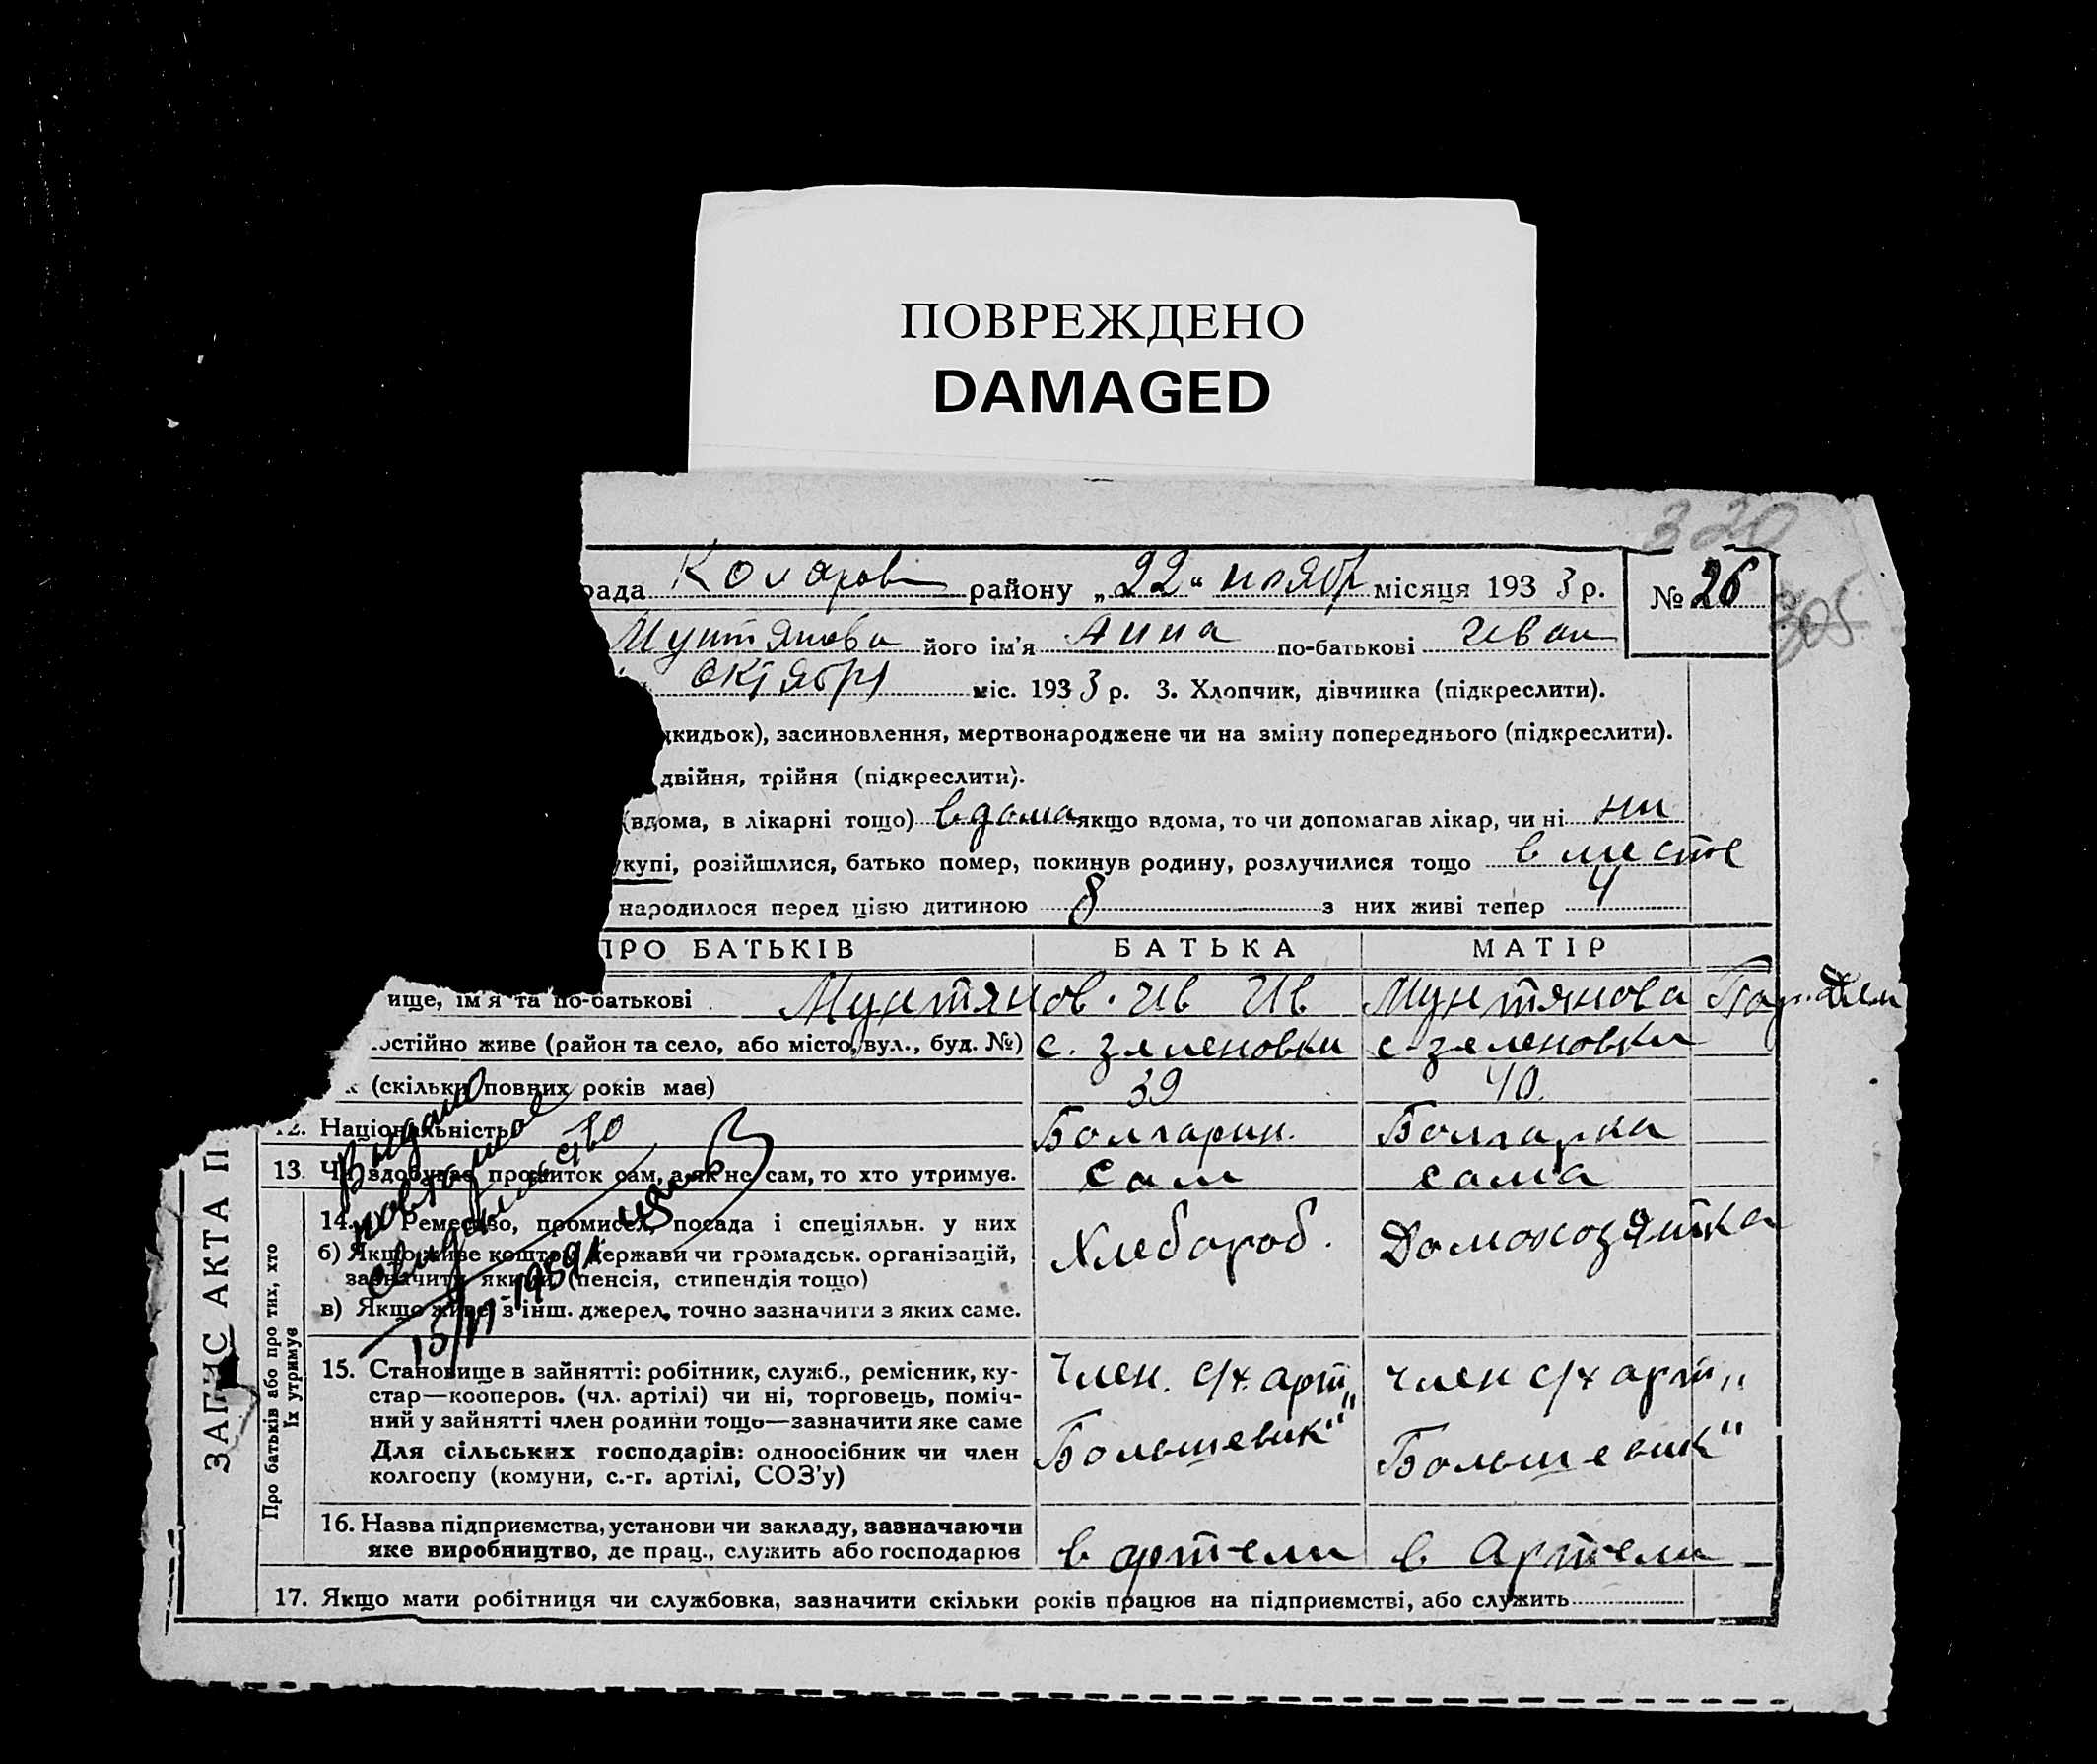 ПОВРЕЖДЕНО
DAMAGED
320
рада Коларов району „22“ ноябр місяця 1933 р. № 26
305
Мунтянова його ім'я Анна по-батькові Иван
октября міс. 1933 р. 3. Хлопчик, дівчинка (підкреслити).
кидьок), засиновлення, мертвонароджене чи на зміну попереднього (підкреслити).
двійня, трійня (підкреслити).
(вдома, в лікарні тощо) вдома якщо вдома, то чи допомагав лікар, чи ні ни
укупі, розійшлися, батько помер, покинув родину, розлучилися тощо в месте
народилося перед цією дитиною 8 з них живі тепер 4
ПРО БАТЬКІВ БАТЬКА МАТІР
ище, ім'я та по-батькові Мунтянов Ив Ив Мунтянова
остійно живе (район та село, або місто, вул., буд. №) с. зеленовки с. зеленовки
к (скільки повних років має) 39 40
12. Національність Болгарин. Болгарка
13. Чи здобуває прожиток сам, а як не сам, то хто утримує. сам сама
14. а) Ремесло, промисел, посада і спеціяльн. у них Хлебороб. Домохозяйка
б) Якщо живе коштом держави чи громадськ. організацій,
зазначити яких (пенсія, стипендія тощо)
в) Якщо живе з інш. джерел, точно зазначити з яких саме.
Видано
повторное
свидетельство
15. Становище в зайнятті: робітник, служб., ремісник, ку-
стар—кооперов. (чл. артілі) чи ні, торговець, поміч-
ний у зайнятті член родини тощо—зазначити яке саме
Для сільських господарів: одноосібник чи член
колгоспу (комуни, с.-г. артілі, СОЗ'у)
Член. с/х. арт „
Большевик“
член с/х арт „
Большевик“
16. Назва підприємства, установи чи закладу, зазначаючи
яке виробництво, де прац., служить або господарює в артели в артели
17. Якщо мати робітниця чи службовка, зазначити скільки років працює на підприємстві, або служить
ЗАПИС АКТА П
Про батьків або про тих, хто
їх утримує